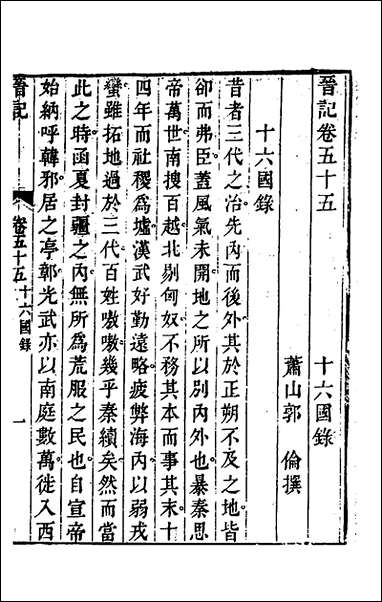 晉記卷五十五　十六國錄
蕭山郭　倫撰
十六國錄
昔者三代之治先內而後外其於正朔不及之地皆
卻而弗臣蓋風氣未開地之所以別內外也暴秦思
帝萬世南搜百越北剔匈奴不務其本而事其末十
四年而社稷爲墟漢武好勤遠略疲弊海內以弱戎
蠻雖拓地過於三代百姓嗷嗷幾乎秦續矣然而當
此之時函夏封疆之內無所爲荒服之民也自宣帝
始納呼韓邪居之亭鄣光武亦以南庭數萬徙入西
晉記
卷五十五 十六國錄
一